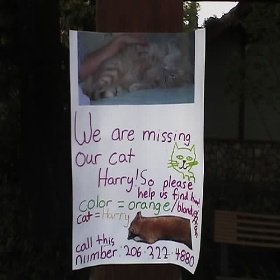 We are missing
our cat
Harry! So please
help us find him!
color = orange/blondish
cat = Harry
call this
number: 206-322-4880